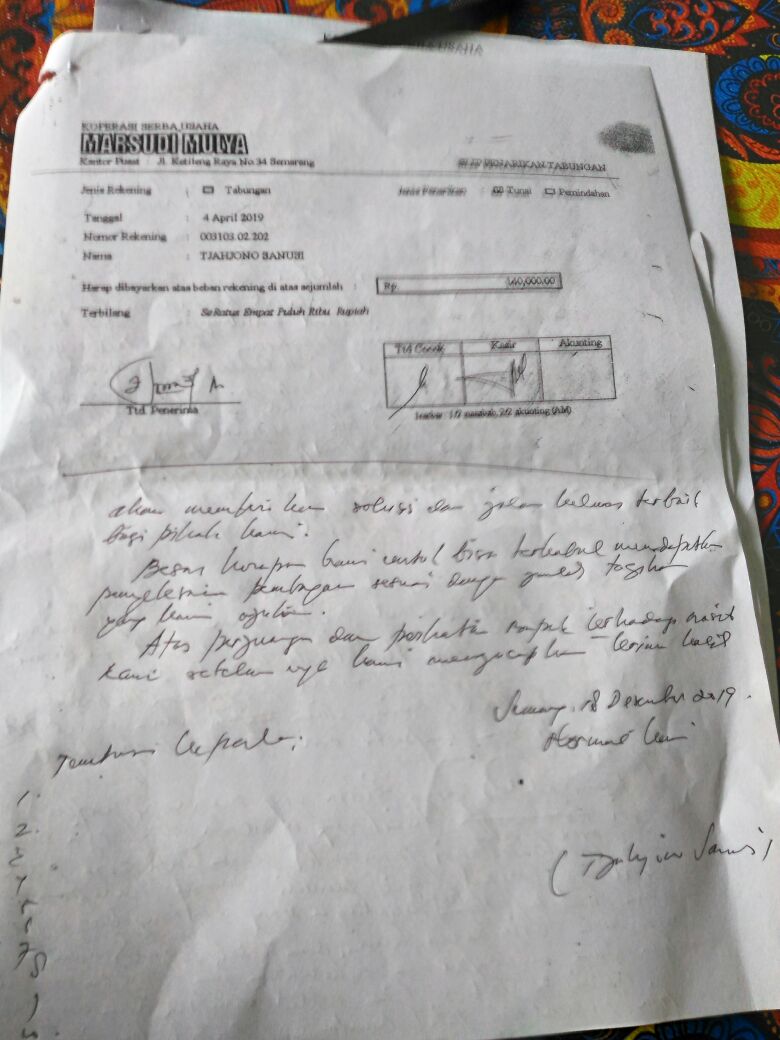 KOPERASI SERBA USAHA
MARSUDI MULYA
Kantor Pusat : Jl. Ketileng Raya No.34 Semarang
SLIP PENARIKAN TABUNGAN
Jenis Rekening : Tabungan
Jenis Penarikan : Tunai Pemindahan
Tanggal : 4 April 2019
Nomor Rekening : 003103.02.202
Nama : TJAHJONO SANUSI
Harap dibayarkan atas beban rekening di atas sejumlah : Rp. 140,000.00
Terbilang : SeRatus Empat Puluh Ribu Rupiah
Ttd Cocok Kasir Akunting
Ttd. Penerima
lembar : 1/2 nasabah, 2/2 akunting (AM)
akan memberikan solusi dan jalan keluar terbaik
bagi pihak kami.
Besar harapan kami untuk bisa terkabul mendapatkan
penyelesaian pembayaran sesuai dengan jumlah tagihan
yang kami ajukan.
Atas perjuangan dan perhatian terhadap nasib
kami sebelumnya kami mengucapkan terima kasih
Semarang, 18 Desember 2019.
Hormat kami
Tembusan kepada;
1.
2